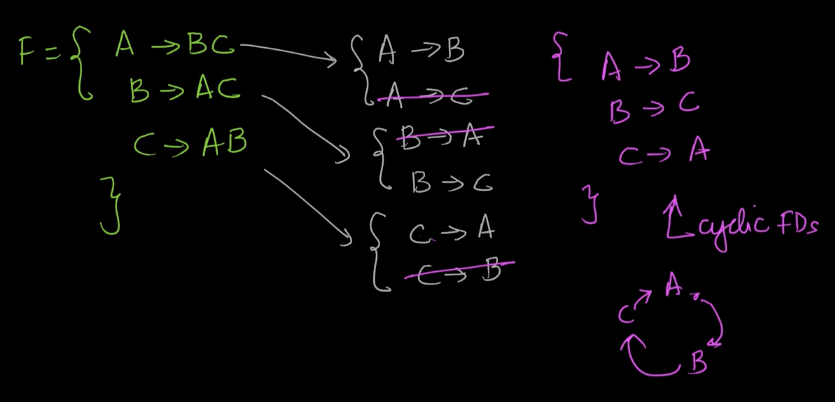 F = { A → BC
B → AC
C → AB
}
{ A → B
A → C
{ B → A
B → C
{ C → A
C → B
{ A → B
B → C
C → A
}
cyclic FDs
A
C
B